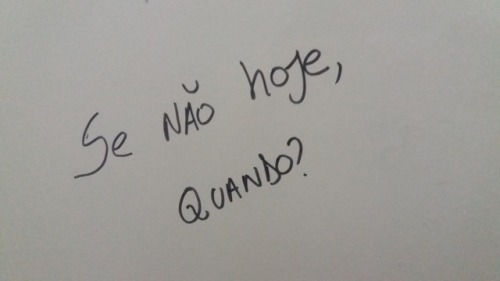 Se NÃO hoje,
QUANDO?